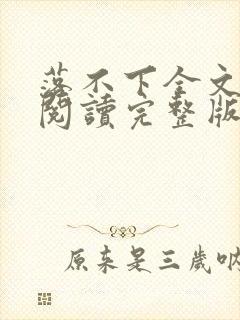 落不下全文
閱讀完整版
原来是三歲吶